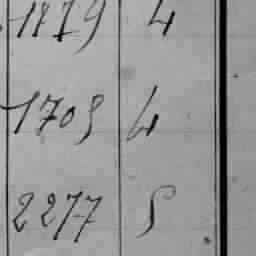 1879 4
1709 4
2277 5